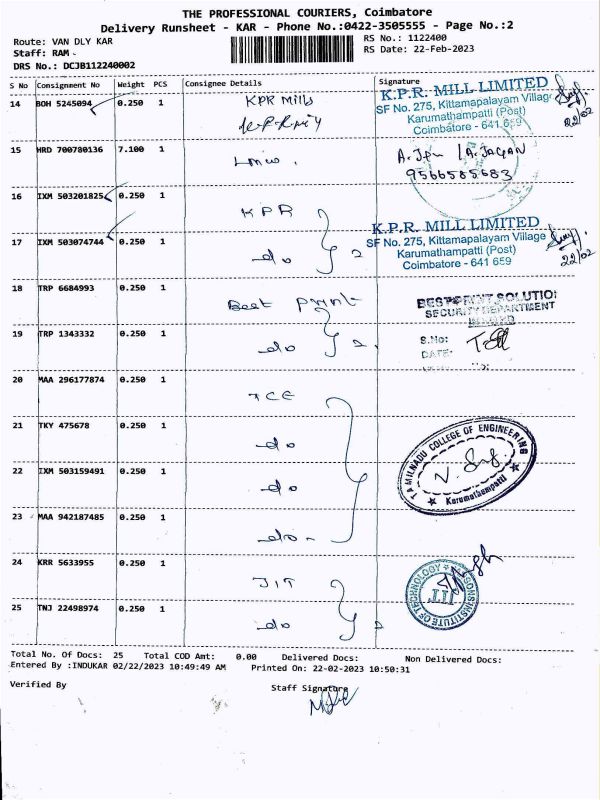 THE PROFESSIONAL COURIERS, Coimbatore
Delivery Runsheet - KAR - Phone No.:0422-3505555 - Page No.:2
Route: VAN DLY KAR
RS No.: 1122400
Staff: RAM
RS Date: 22-Feb-2023
DRS No.: DCJB112240002
S No Consignment No Weight PCS Consignee Details Signature
14 BOH 5245094 0.250 1 KPR Mills
K.P.R. MILL LIMITED
SF No. 275, Kittamapalayam Village
Karumathampatti (Post)
Coimbatore - 641 659
22/02
15 HRD 700780136 7.100 1
A. JAGAN
9566585683
16 IXM 503201825 0.250 1 KPR
17 IXM 503074744 0.250 1 do 2
K.P.R. MILL LIMITED
SF No. 275, Kittamapalayam Village
Karumathampatti (Post)
Coimbatore - 641 659
22/02
18 TRP 6684993 0.250 1 Best print
SECURITY DEPARTMENT
19 TRP 1343332 0.250 1 do 2
S.No:
DATE:
20 MAA 296177874 0.250 1 TCE
21 TKY 475678 0.250 1 do
TAMILNADU COLLEGE OF ENGINEERING
Karumathampatti
22 IXM 503159491 0.250 1 do
23 MAA 942187485 0.250 1 do
24 KRR 5633955 0.250 1 JIT
INSTITUTE OF TECHNOLOGY
JIT
25 TNJ 22498974 0.250 1 do 2
Total No. Of Docs: 25 Total COD Amt: 0.00 Delivered Docs: Non Delivered Docs:
Entered By :INDUKAR 02/22/2023 10:49:49 AM Printed On: 22-02-2023 10:50:31
Verified By
Staff Signature